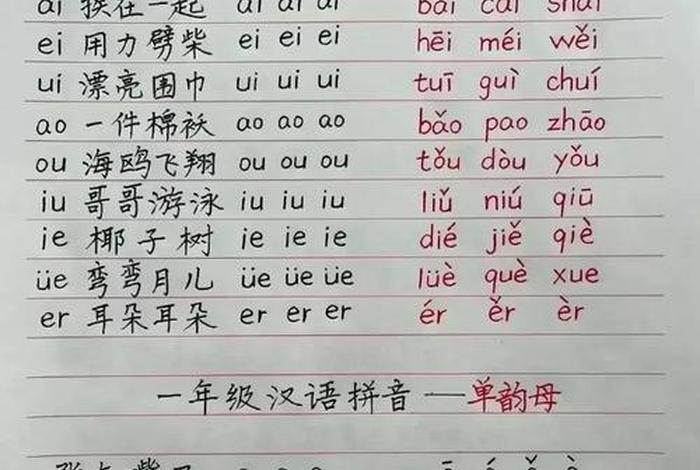 ai 挨在一起 ai ai ai
ei 用力劈柴 ei ei ei hēi méi wěi
ui 漂亮围巾 ui ui ui tuī guì chuí
ao 一件棉袄 ao ao ao bǎo pao zhāo
ou 海鸥飞翔 ou ou ou tǒu dòu yǒu
iu 哥哥游泳 iu iu iu liǔ niú qiū
ie 椰子树 ie ie ie dié jiě qiè
üe 弯弯月儿 üe üe üe lüè què xue
er 耳朵耳朵 er er er ér ěr èr
一年级汉语拼音——单韵母